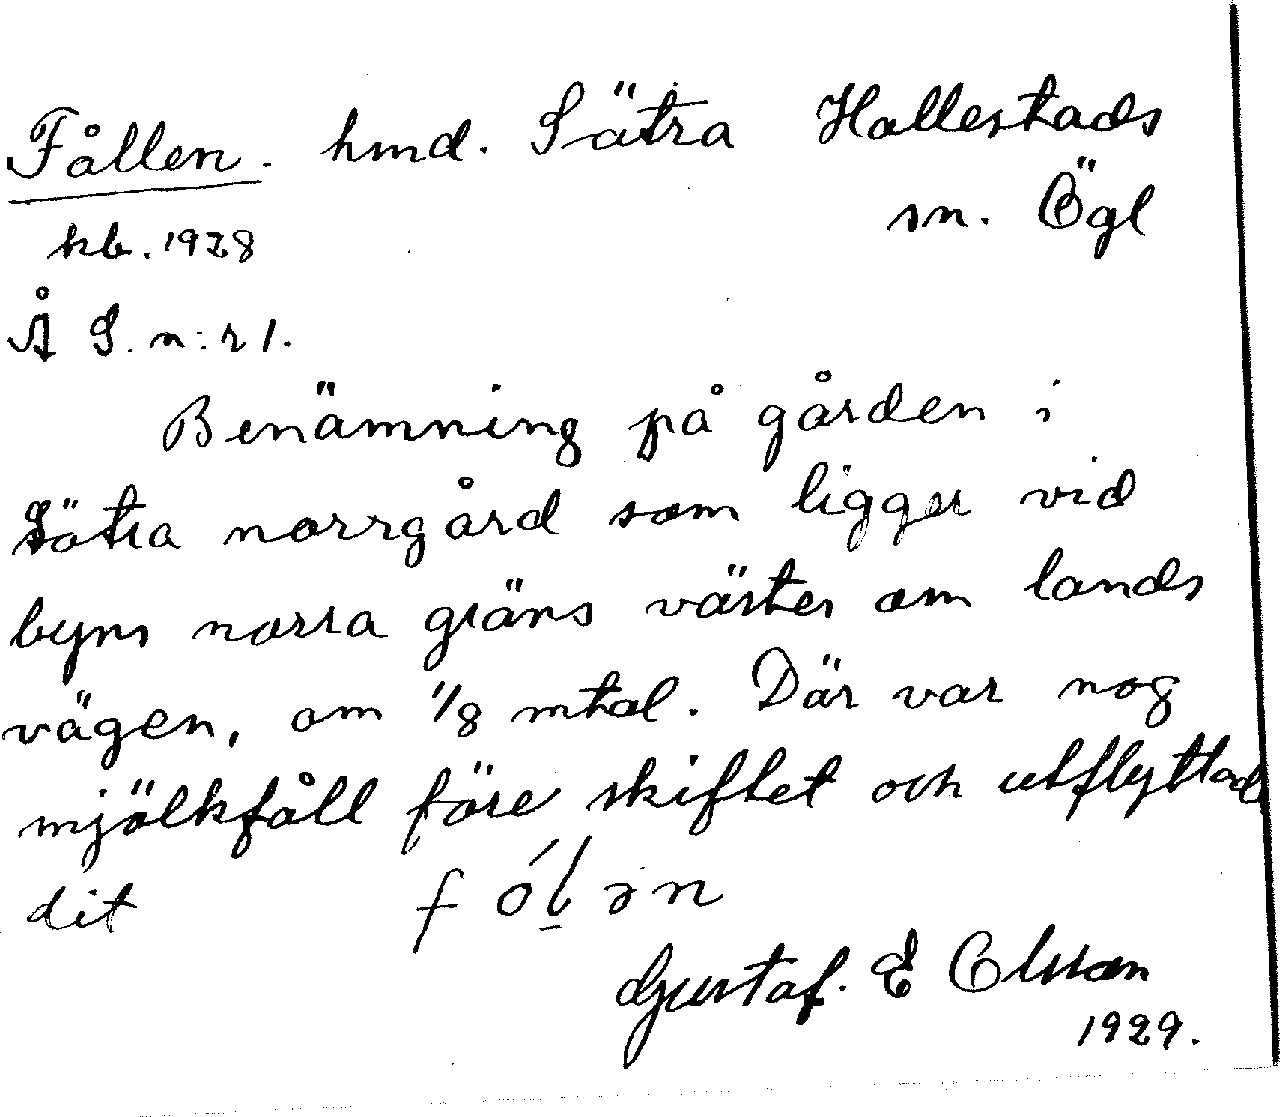 Fållen. hmd. Sätra Hallestads
sn. Ögl
kb. 1928
Å S. n:r 1.
Benämning på gården i
Sätra norrgård som ligger vid
byns norra gräns väster om lands
vägen, om 1/8 mtal. Där var nog
mjölkfåll före skiftet och utflyttad
dit fól̲ən
Gustaf. E Olsson
1929.